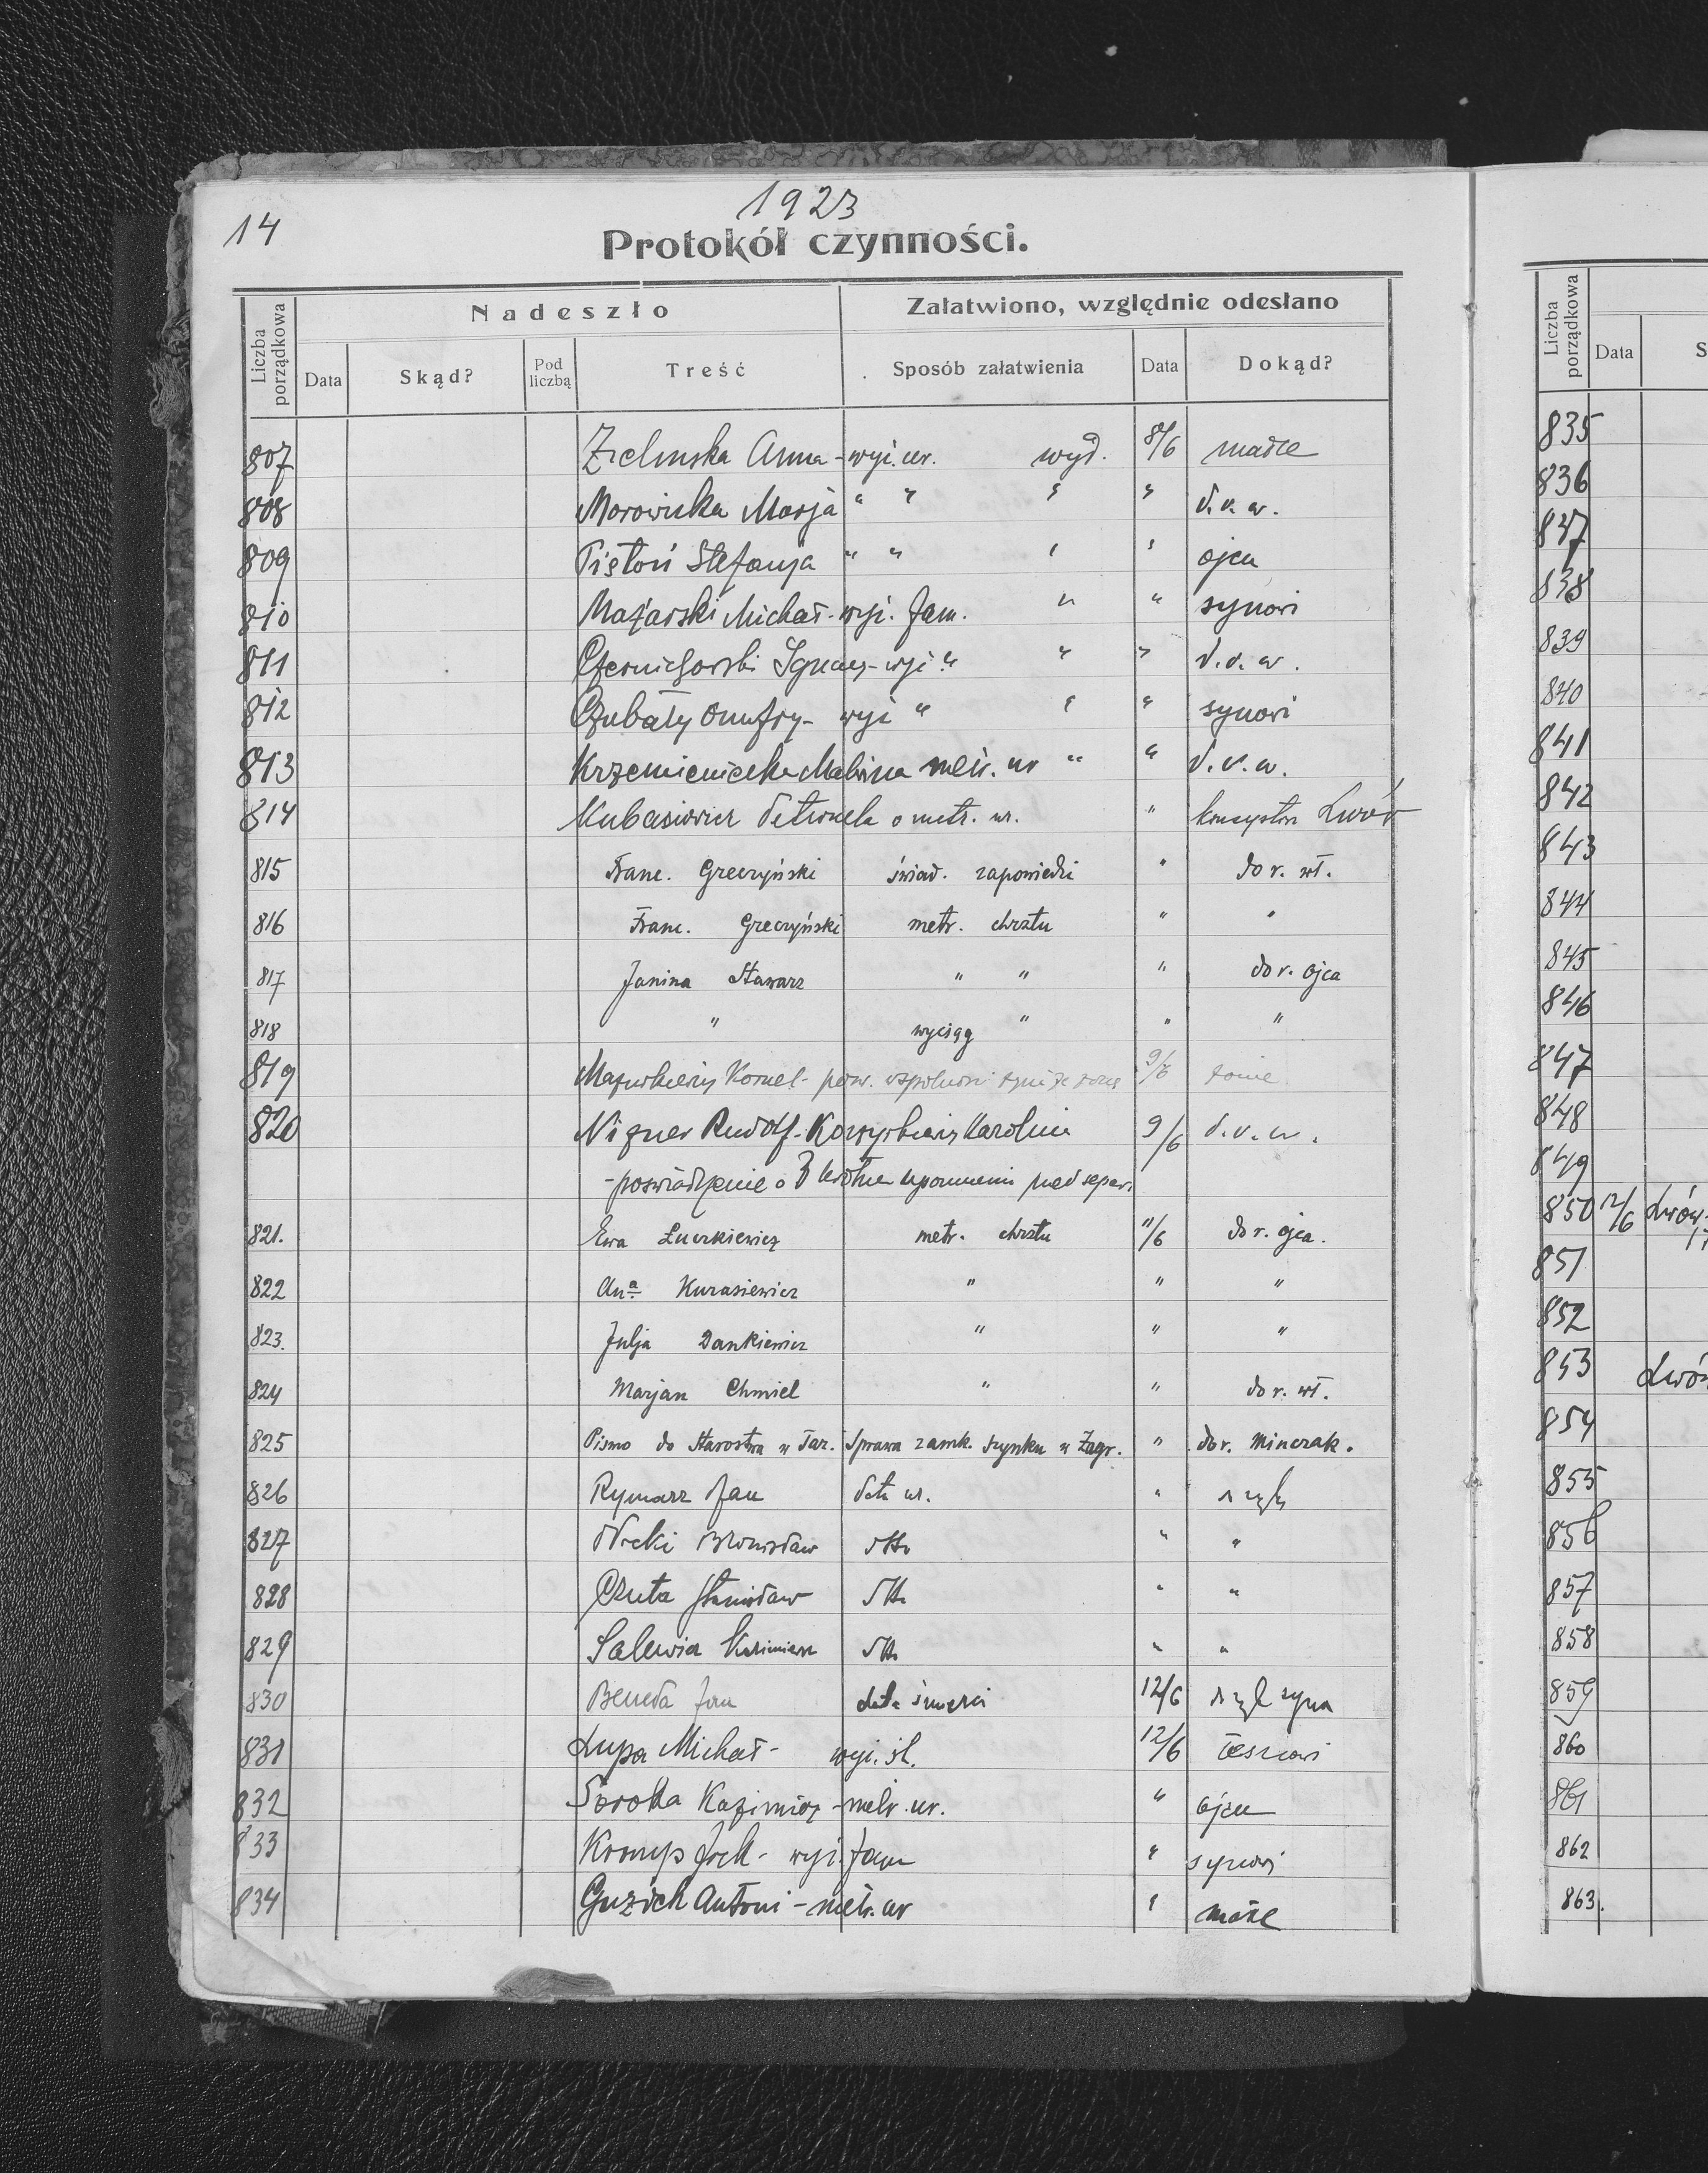 14
1923
Protokół czynności.
Liczba porządkowa
Nadeszło
Załatwiono, względnie odesłano
Data
Skąd?
Pod liczbą
Treść
Sposób załatwienia
Data
Dokąd?
807 Zielinska Anna - wyc. ur. wyd. 8/6 matce
808 Marja " " " " d. r. w.
809 Pistoń Stefanja " " " " ojcu
810 Mazarski Michał - wyc. fam. " " synowi
811 Ignacy - wyc " " " d. r. w.
812 Czubaty Onufry - wyc " " " synowi
813 Malwina metr. ur " " d. r. w.
814 o metr. ur. " Lwów
815 Franc. Greczyński świad. zapowiedzi " do r. wł.
816 Franc. Greczyński metr. chrztu " "
817 Janina Stawarz " " " do r. ojca
818 " wyciąg " " "
819 Kornel - 9/6 żonie
820 Nizner Rudolf - Karolina 9/6 d. r. w.
- poświadczenie o 3 przed separ.
821. Ewa Łuczkiewicz metr. chrztu 11/6 do r. ojca.
822 Anna Kurasiewicz " " "
823. Julja Dankiewicz " " "
824 Marjan Chmiel " " do r. wł.
825 Pismo do Starostwa w Tar. Sprawa zamk. szynku w Zagr. " do r. Minczak.
826 Rymarz Jan data ur. "
827 Bronisław dtto " "
828 Czuta Stanisław dtto " "
829 Kazimierz dtto " "
830 Beneda Jan data śmierci 12/6 syna
831 Łupa Michał - wyc. śl. 12/6 teściowi
832 Soroka Kazimierz - metr. ur. " ojcu
833 wyc. fam " synowi
834 Guzick Antoni - metr. ur " matce
Liczba porządkowa
Data
S
835
836
837
838
839
840
841
842
843
844
845
846
847
848
849
850 12/6 Lwów
851
852
853 Lwów
854
855
856
857
858
859
860
861
862
863.